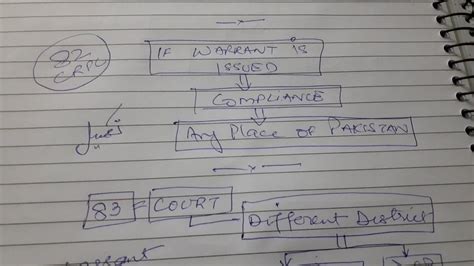 82
CRPC
IF WARRANT IS
ISSUED
COMPLIANCE
Any Place of PAKISTAN
83 = COURT
Different District